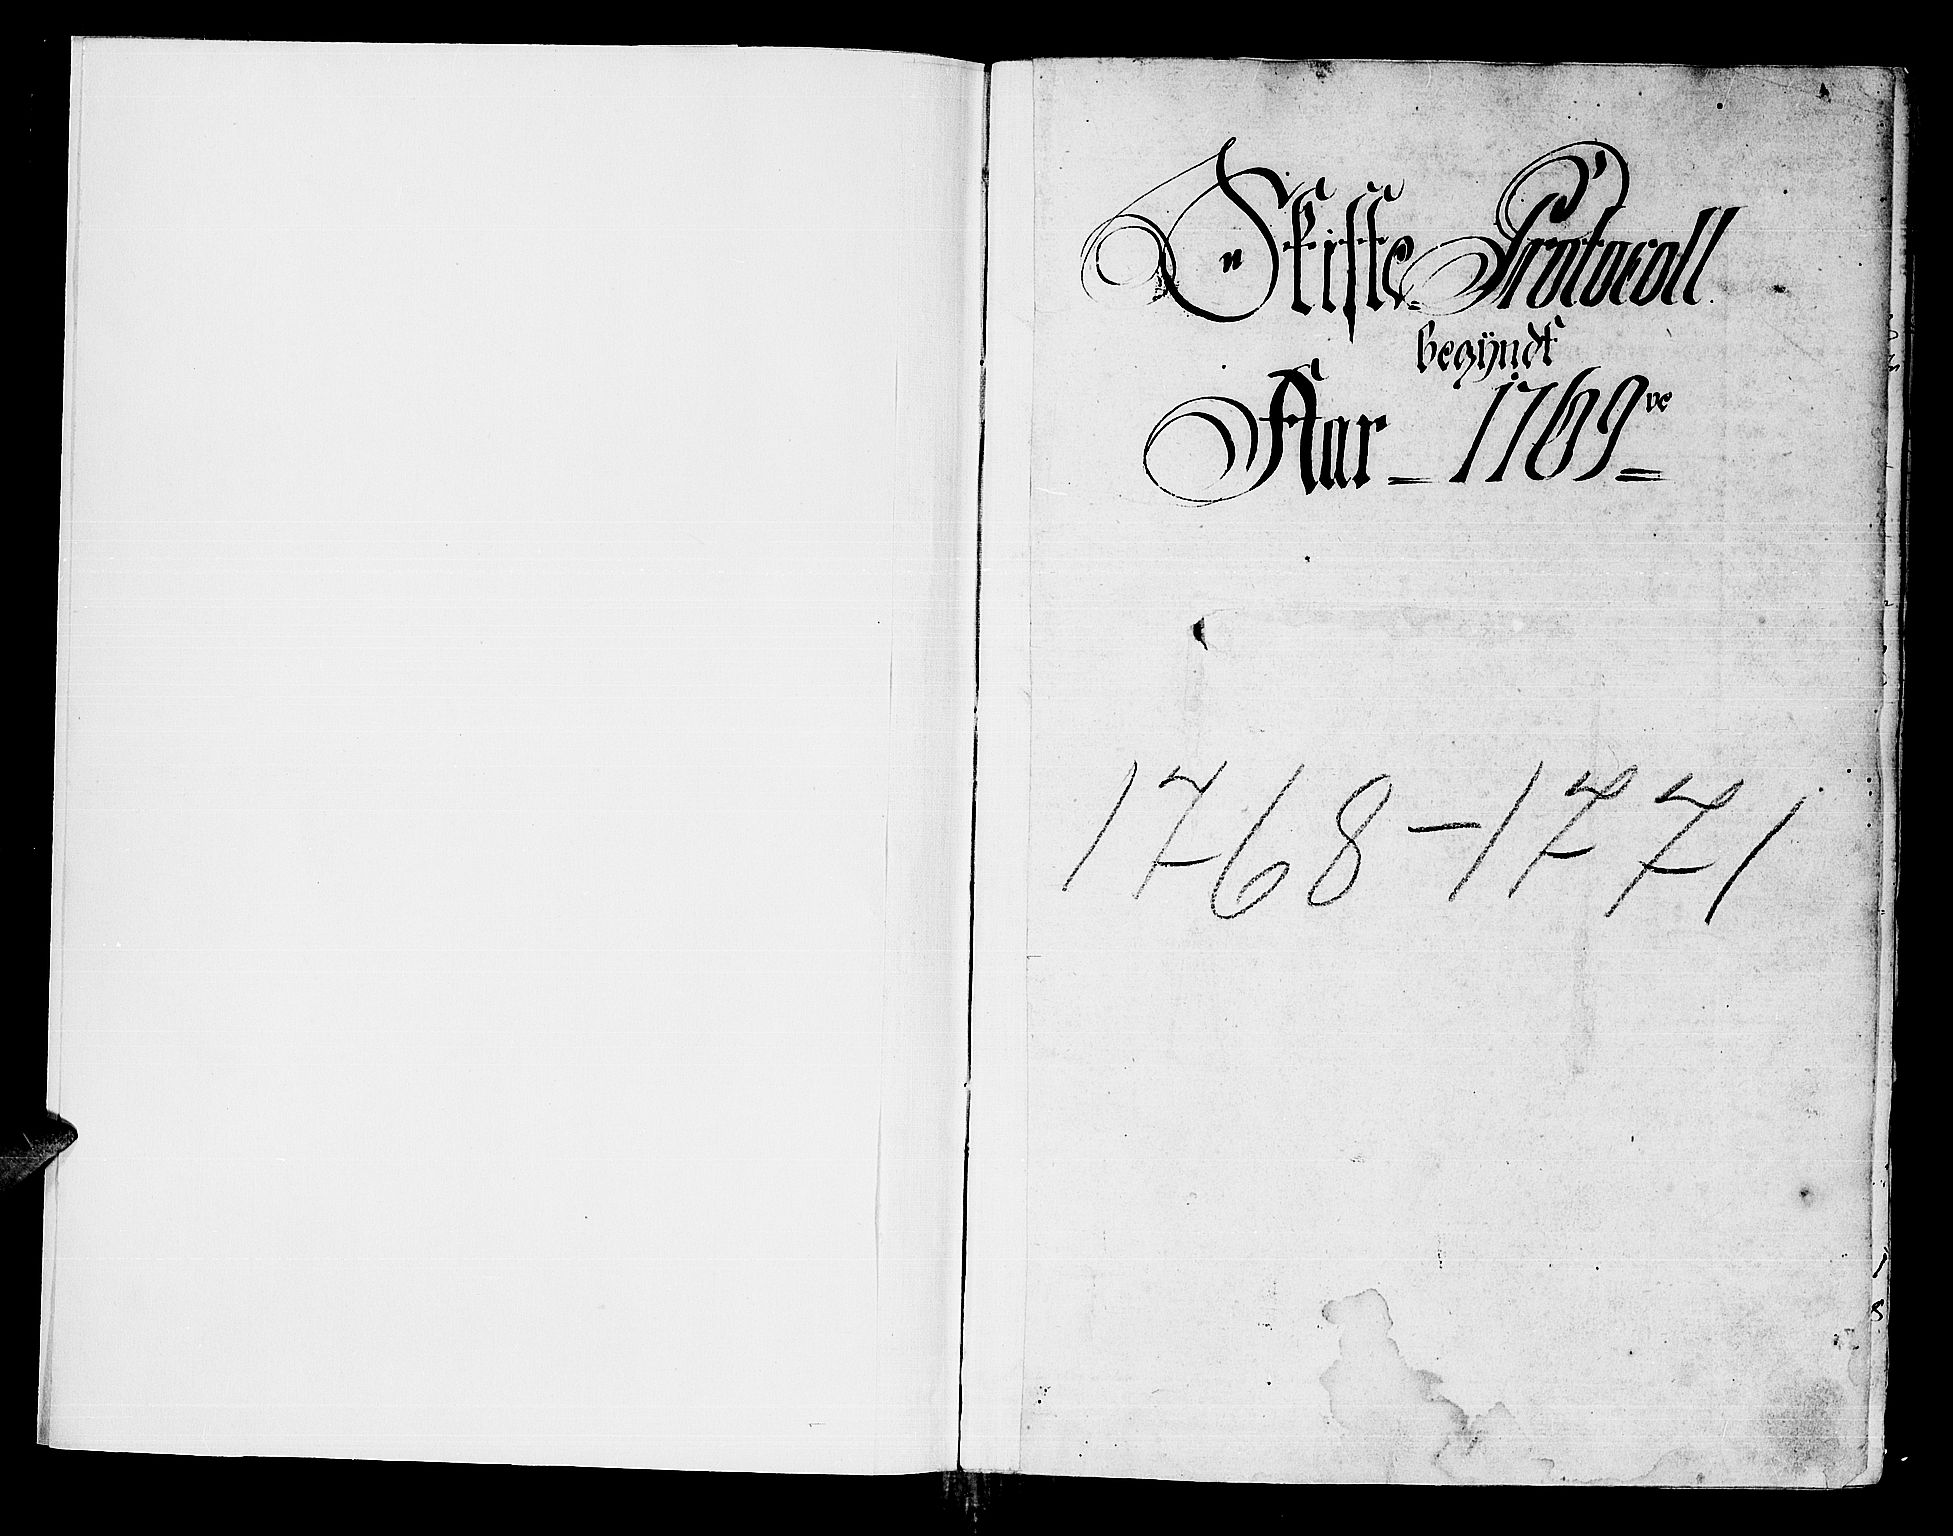 Skifte Protocoll
begÿndt
Aar – 1769ve
1768–1771